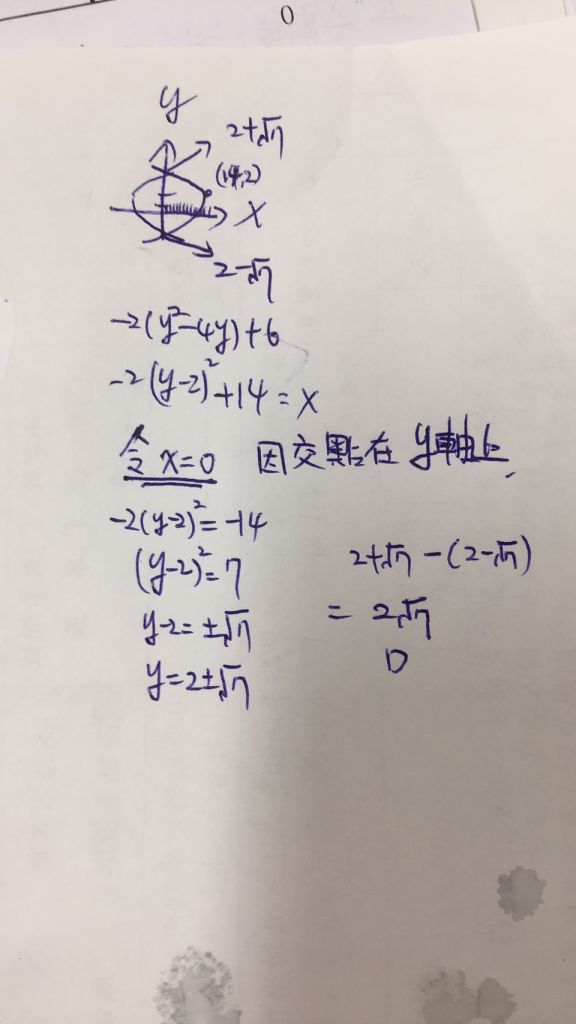 0
y
2+√7
(14,2)
x
2-√7
-2(y²-4y)+6
-2(y-2)²+14=x
令 x=0 因交點在 y軸上
-2(y-2)²=-14
(y-2)²=7
y-2=±√7
y=2±√7
2+√7-(2-√7)
= 2√7
D